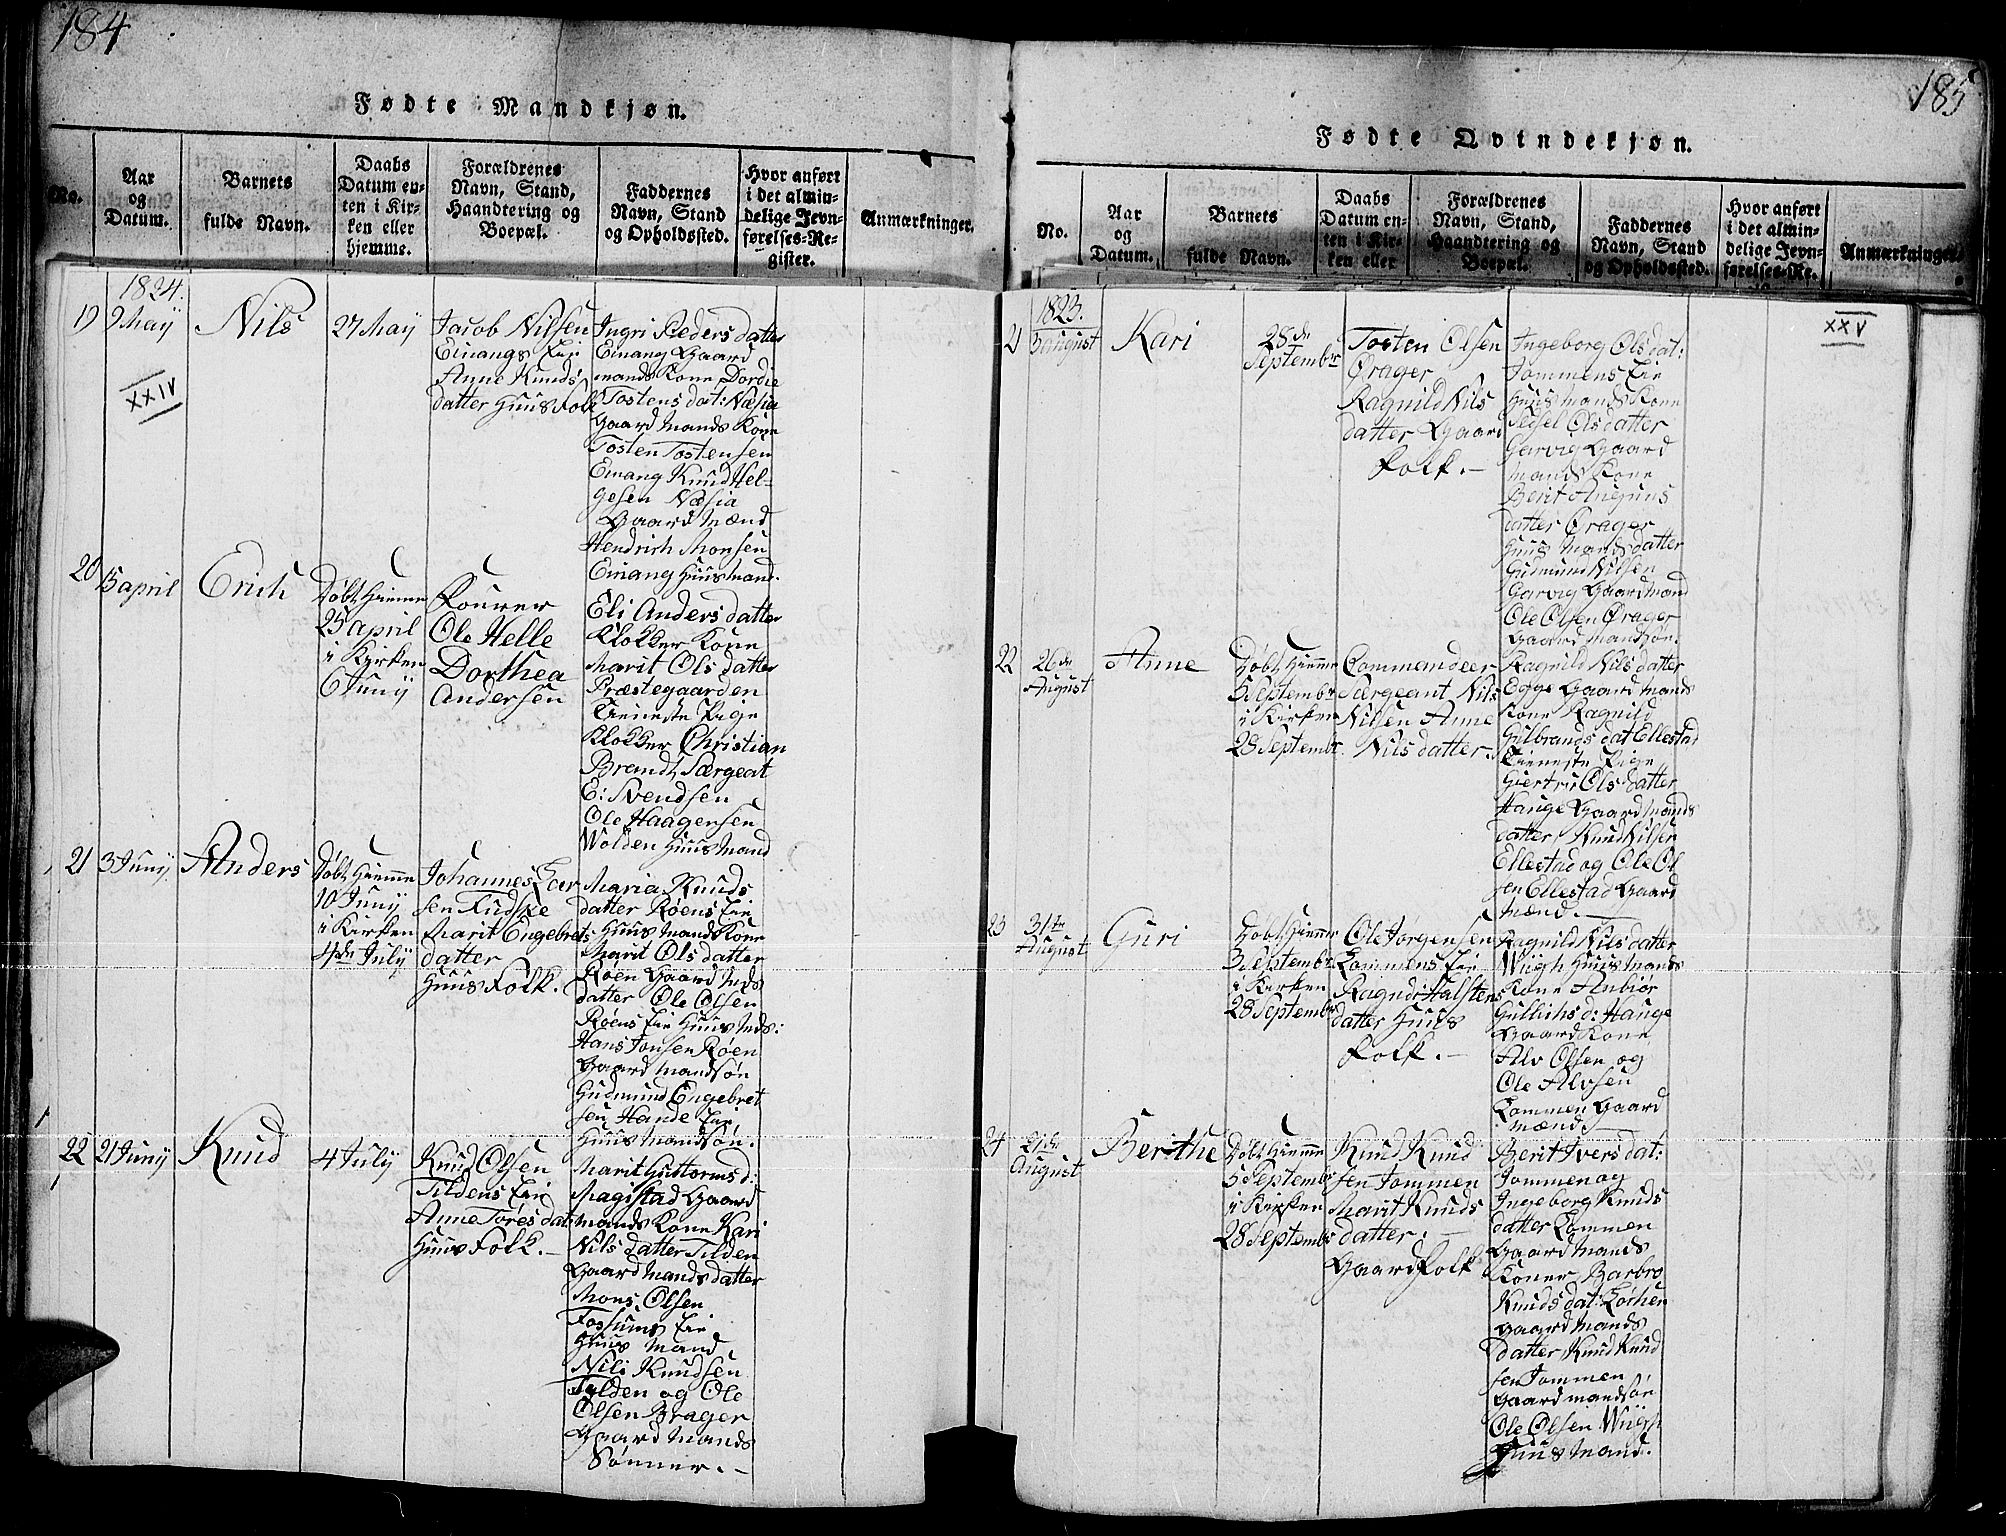 184
Fødte Mandkjøn.
No.
Aar
og
Datum.
Barnets
fulde Navn.
Daabs
Datum en-
ten i Kir-
ken eller
hjemme.
Forældrenes
Navn, Stand,
Haandtering og
Boepæl.
Faddernes
Navn, Stand
og Opholdssted.
Hvor anført
i det almin-
delige Jevn-
førelses-Re-
gister.
Anmærkninger.
1824.
19
9 May
XXIV
Nils
27 May
Jacob Nilsen
Einangs Eie
Anne Knuds
datter Huus Folk
Ingri Peders datter
Einang Gaard
mands Kone Dordie
Tostens dat: Næsia
Gaard Mands Kone
Tosten Tostensen
Einang Knud Hel-
gesen Næsia
Gaard Mænd
Hendrich Monsen
Einang Huusmand.
20
15 april
Erich
Døbt Hiemme
25 april
i Kirken
6 Juny
Fourer
Ole Helle
Dorthea
Andersen
Eli Anders datter
Klokker Kone
Marit Ols datter
Præstegaarden
Tieneste Pige
Klokker Christian
Brandt Særgeat
E: Svendsen
Ole Haagensen
Wolden Huus Mand
21
3 Juny
Anders
Døbt Hiemme
10 Juny
i Kirken
4de July
Johannes Lar
sen Fudske
Marit Engebrets
datter
Huus Folk.
Maria Knuds
datter Røens Eie
Huus Mands Kone
Marit Ols datter
Røen Gaard Mds
datter Ole Olsen
Røens Eie Huus Mds:
Hans Jonsen Røen
Gaard Mandsøn
Gudmund Engebret
sen Hande Eie
Huus Mandsøn.
22
21 Juny
Knud
4 July
Knud Olsen
Tildens Eie
Anne Tores dat
Huus Folk.
Marit Guttorms d:
Magistad Gaard
mands Kone Kari
Nils datter Tilden
Gaard Mands datter
Mons Olsen
Fossums Eie
Huus Mand
Nili Knudsen
Tilden og Ole
Olsen Brager
Gaard Mands
Sønner.
185
Fødte Qvindekjøn.
No.
Aar
og
Datum.
Barnets
fulde Navn.
Daabs
Datum en-
ten i Kir-
ken eller
Forældrenes
Navn, Stand,
Haandtering og
Boepæl.
Faddernes
Navn, Stand
og Opholdssted.
Hvor anført
i det almin-
delige Jevn-
førelses-Re-
Anmærkninger.
1823.
21
3 August
Kari
28de
Septembr
Tosten Olsen
Ørager
Ragnild Nils
datter Gaard
Folk.
Ingeborg Ols dat:
Jommens Eie
Huus Mands Kone
Sidsel Ols datter
Garvig Gaard
Mands Kone
Berit Anguns
datter Ørager
Huus Mands datter
Gudmund Nilsen
Garvig Gaard Mand
Ole Olsen Ørager
Gaard Mandsøn.
XXV
22
26de
August
Anne
Døbt Hiemme
5 Septembr
i Kirken
28 Septembr.
Commandeer
Særgeant Nils
Nilsen Anne
Nils datter.
Ragnild Nils datter
Egge Gaard Mands
Kone Ragnild
Gulbrands dat Ellestad
Tieneste Pige
Giertru Ols datter
Hauge Gaard Mands
datter Knud Nilsen
Ellestad og Ole Ol
sen Ellestad Gaard
Mænd.
23
31te
August
Guri
Døbt Hiemme
3 Septembr
i Kirken
28 Septembr
Ole Jørgensen
Lommens Eie
Ragndi Halstens
datter Huus
Folk.
Ragnild Nils datter
Wiigh Huus Mands
Kone Anbiør
Gullichs d: Hauge
Gaard Kone
Alv Olsen og
Ole Alvsen
Lommen Gaard
mænd
24
21de
August
Berithe
Døbt Hiemme
5 Septembr
i Kirken
28 Septembr
Knud Knud
sen Jommen
Marit Knuds
datter.
Gaard Folk
Berit Ivers dat:
Jommen og
Ingeborg Knuds
datter Lommen
Gaard Mands
Koner Barbro
Knuds dat: Lørhen
Gaard Mands
datter Knud Knud
sen Jommen
Gaard mandsøn
Ole Olsen Wiigh
Huus Mand.